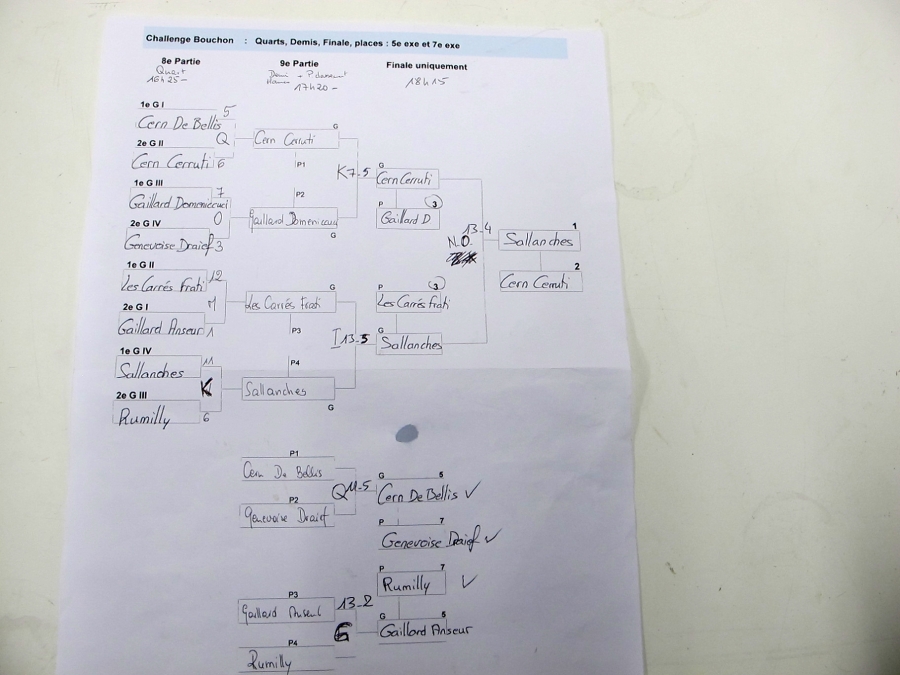 Challenge Bouchon : Quarts, Demis, Finale, places : 5e exe et 7e exe
8e Partie 9e Partie Finale uniquement
Quart
16h25- 17h20- 18h15
1e G I 5
Cern De Bellis
Q
2e G II
Cern Cerruti 6
1e G III 7
Gaillard Domeniccuci
O
2e G IV
Genevoise Draief 3
1e G II 12
Les Carrés Frati
M
2e G I
Gaillard Anseur 1
1e G IV 11
Sallanches
K
2e G III
Rumilly 6
G
Cern Cerruti
P1
P2
Gaillard Domeniccuci
G
G
Les Carrés Frati
P3
P4
Sallanches
G
K 7-5
G
Cern Cerruti
P 3
Gaillard D
P 3
Les Carrés Frati
I 13-5
G
Sallanches
13-4
N.O.
1
Sallanches
2
Cern Cerruti
P1
Cern De Bellis
P2
Genevoise Draief
Q 11-5
G 5
Cern De Bellis ✓
P 7
Genevoise Draief ✓
P 7
Rumilly ✓
P3
Gaillard Anseur
13-2
G
P4
Rumilly
G 5
Gaillard Anseur